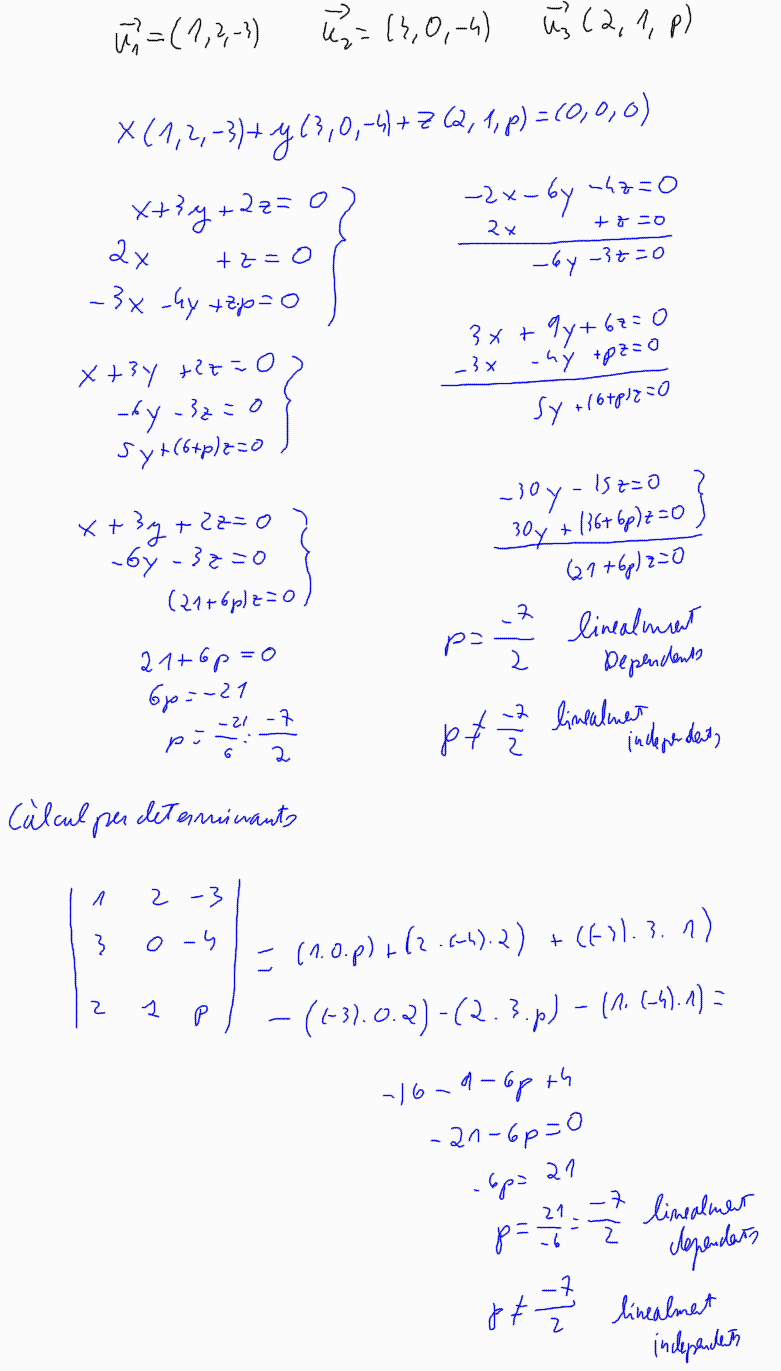 u₁⃗ = (1, 2, -3) u₂⃗ = (3, 0, -4) u₃⃗ (2, 1, p)
x(1, 2, -3) + y(3, 0, -4) + z(2, 1, p) = (0, 0, 0)
x + 3y + 2z = 0
2x + z = 0
-3x - 4y + z·p = 0
-2x - 6y - 4z = 0
2x + z = 0
-6y - 3z = 0
x + 3y + 2z = 0
-6y - 3z = 0
5y + (6+p)z = 0
3x + 9y + 6z = 0
-3x - 4y + pz = 0
5y + (6+p)z = 0
x + 3y + 2z = 0
-6y - 3z = 0
(21 + 6p)z = 0
-30y - 15z = 0
30y + (36 + 6p)z = 0
(21 + 6p)z = 0
21 + 6p = 0
6p = -21
p = -21/6 = -7/2
p = -7/2 linealment Dependents
p ≠ -7/2 linealment independents
Càlcul per determinants
| 1 2 -3 |
| 3 0 -4 | = (1·0·p) + (2·(-4)·2) + ((-3)·3·1)
| 2 1 p | - ((-3)·0·2) - (2·3·p) - (1·(-4)·1) =
-16 - 9 - 6p + 4
-21 - 6p = 0
-6p = 21
p = 21/-6 = -7/2 linealment dependents
p ≠ -7/2 linealment independents